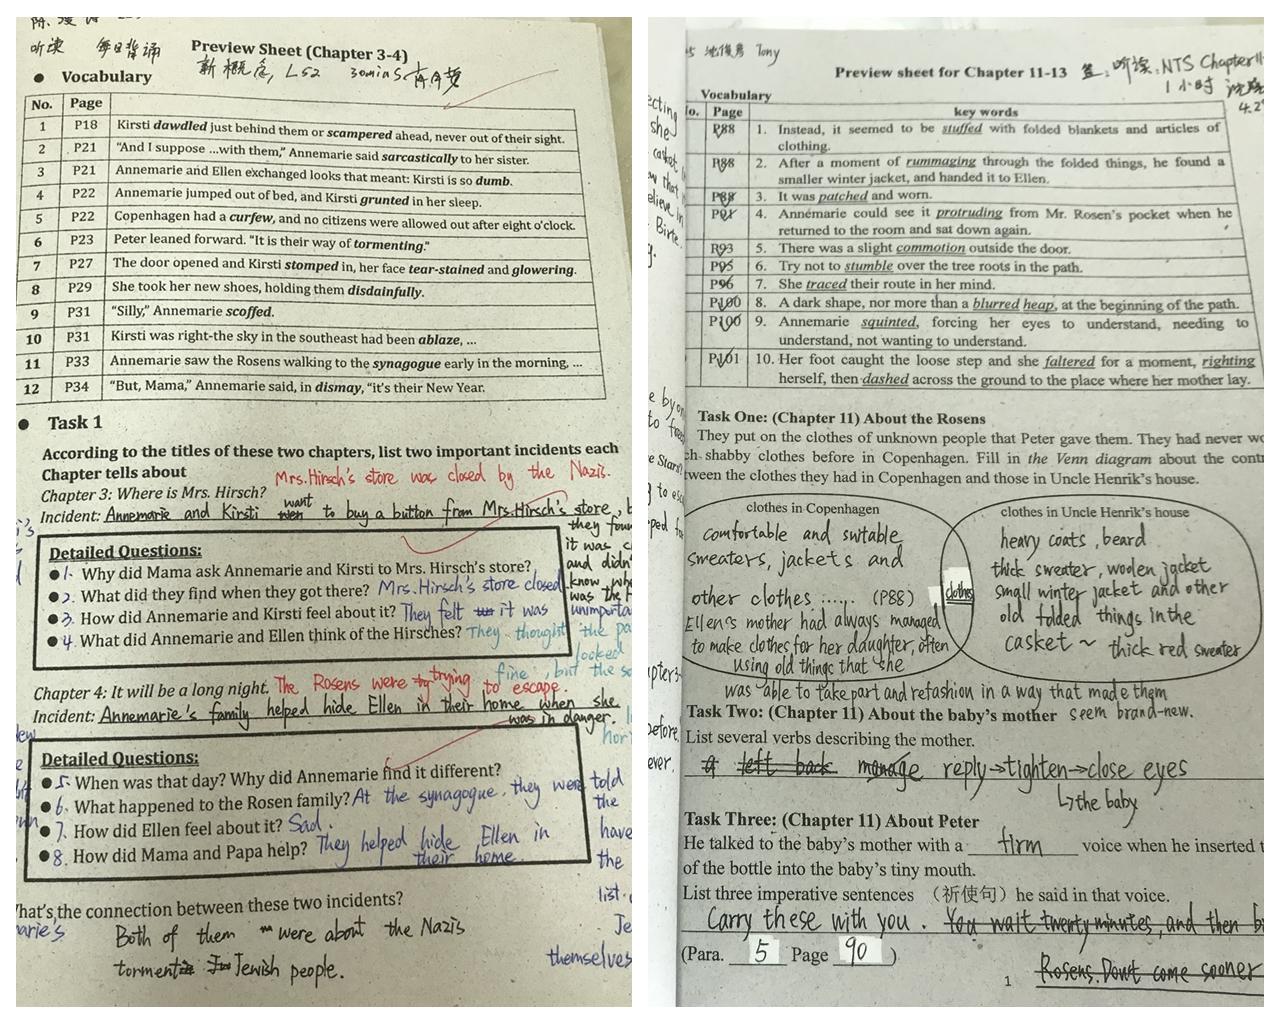 听读 每日背诵 Preview Sheet (Chapter 3-4)
新概念, L52 30mins.
● Vocabulary
No. Page
1 P18 Kirsti dawdled just behind them or scampered ahead, never out of their sight.
2 P21 “And I suppose ...with them,” Annemarie said sarcastically to her sister.
3 P21 Annemarie and Ellen exchanged looks that meant: Kirsti is so dumb.
4 P22 Annemarie jumped out of bed, and Kirsti grunted in her sleep.
5 P22 Copenhagen had a curfew, and no citizens were allowed out after eight o'clock.
6 P23 Peter leaned forward. “It is their way of tormenting.”
7 P27 The door opened and Kirsti stomped in, her face tear-stained and glowering.
8 P29 She took her new shoes, holding them disdainfully.
9 P31 “Silly,” Annemarie scoffed.
10 P31 Kirsti was right-the sky in the southeast had been ablaze, ...
11 P33 Annemarie saw the Rosens walking to the synagogue early in the morning, ...
12 P34 “But, Mama,” Annemarie said, in dismay, “it's their New Year.
● Task 1
According to the titles of these two chapters, list two important incidents each
Chapter tells about Mrs.Hirsch's store was closed by the Nazis.
Chapter 3: Where is Mrs. Hirsch?
Incident: Annemarie and Kirsti want to buy a button from Mrs.Hirsch's store,
they
it was
and didn'
know
was the
unimporta
Detailed Questions:
●1. Why did Mama ask Annemarie and Kirsti to Mrs. Hirsch's store?
●2. What did they find when they got there? Mrs.Hirsch's store closed
●3. How did Annemarie and Kirsti feel about it? They felt it was
●4. What did Annemarie and Ellen think of the Hirsches? They thought the
looked
fine, but the
Chapter 4: It will be a long night. The Rosens were trying to escape.
Incident: Annemarie's family helped hide Ellen in their home when she
was in danger.
Detailed Questions:
●5. When was that day? Why did Annemarie find it different?
●6. What happened to the Rosen family? At the synagogue, they were told
the
●7. How did Ellen feel about it? Sad. have
●8. How did Mama and Papa help? They helped hide Ellen in
their home. the
list.
What's the connection between these two incidents?
Both of them were about the Nazis
torment Jewish people.
themselves
Tony
Preview sheet for Chapter 11-13 签: 听读: NTS Chapter 11
1小时
Vocabulary
No. Page key words
P88 1. Instead, it seemed to be stuffed with folded blankets and articles of
clothing.
P88 2. After a moment of rummaging through the folded things, he found a
smaller winter jacket, and handed it to Ellen.
P88 3. It was patched and worn.
P91 4. Annemarie could see it protruding from Mr. Rosen's pocket when he
returned to the room and sat down again.
P93 5. There was a slight commotion outside the door.
P95 6. Try not to stumble over the tree roots in the path.
P96 7. She traced their route in her mind.
P100 8. A dark shape, nor more than a blurred heap, at the beginning of the path.
P100 9. Annemarie squinted, forcing her eyes to understand, needing to
understand, not wanting to understand.
P101 10. Her foot caught the loose step and she faltered for a moment, righting
herself, then dashed across the ground to the place where her mother lay.
Task One: (Chapter 11) About the Rosens
They put on the clothes of unknown people that Peter gave them. They had never wo
ch shabby clothes before in Copenhagen. Fill in the Venn diagram about the contr
tween the clothes they had in Copenhagen and those in Uncle Henrik's house.
clothes in Copenhagen
comfortable and suitable
sweaters, jackets and
other clothes ...... (P88)
Ellen's mother had always managed
to make clothes for her daughter, often
using old things that she
was able to take part and refashion in a way that made them
seem brand-new.
clothes
clothes in Uncle Henrik's house
heavy coats, beard
thick sweater, woolen jacket
small winter jacket and other
old folded things in the
casket ~ thick red sweater
Task Two: (Chapter 11) About the baby's mother
List several verbs describing the mother.
left back manage reply→tighten→close eyes
↳the baby
Task Three: (Chapter 11) About Peter
He talked to the baby's mother with a firm voice when he inserted t
of the bottle into the baby's tiny mouth.
List three imperative sentences （祈使句）he said in that voice.
Carry these with you. You wait twenty minutes, and then
(Para. 5 Page 90 )
Rosens. Don't come sooner
1